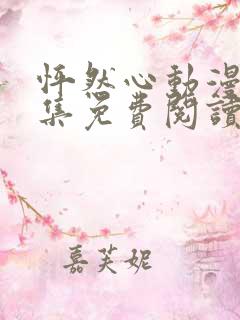 怦然心動漫
集免費閱讀
嘉芙妮